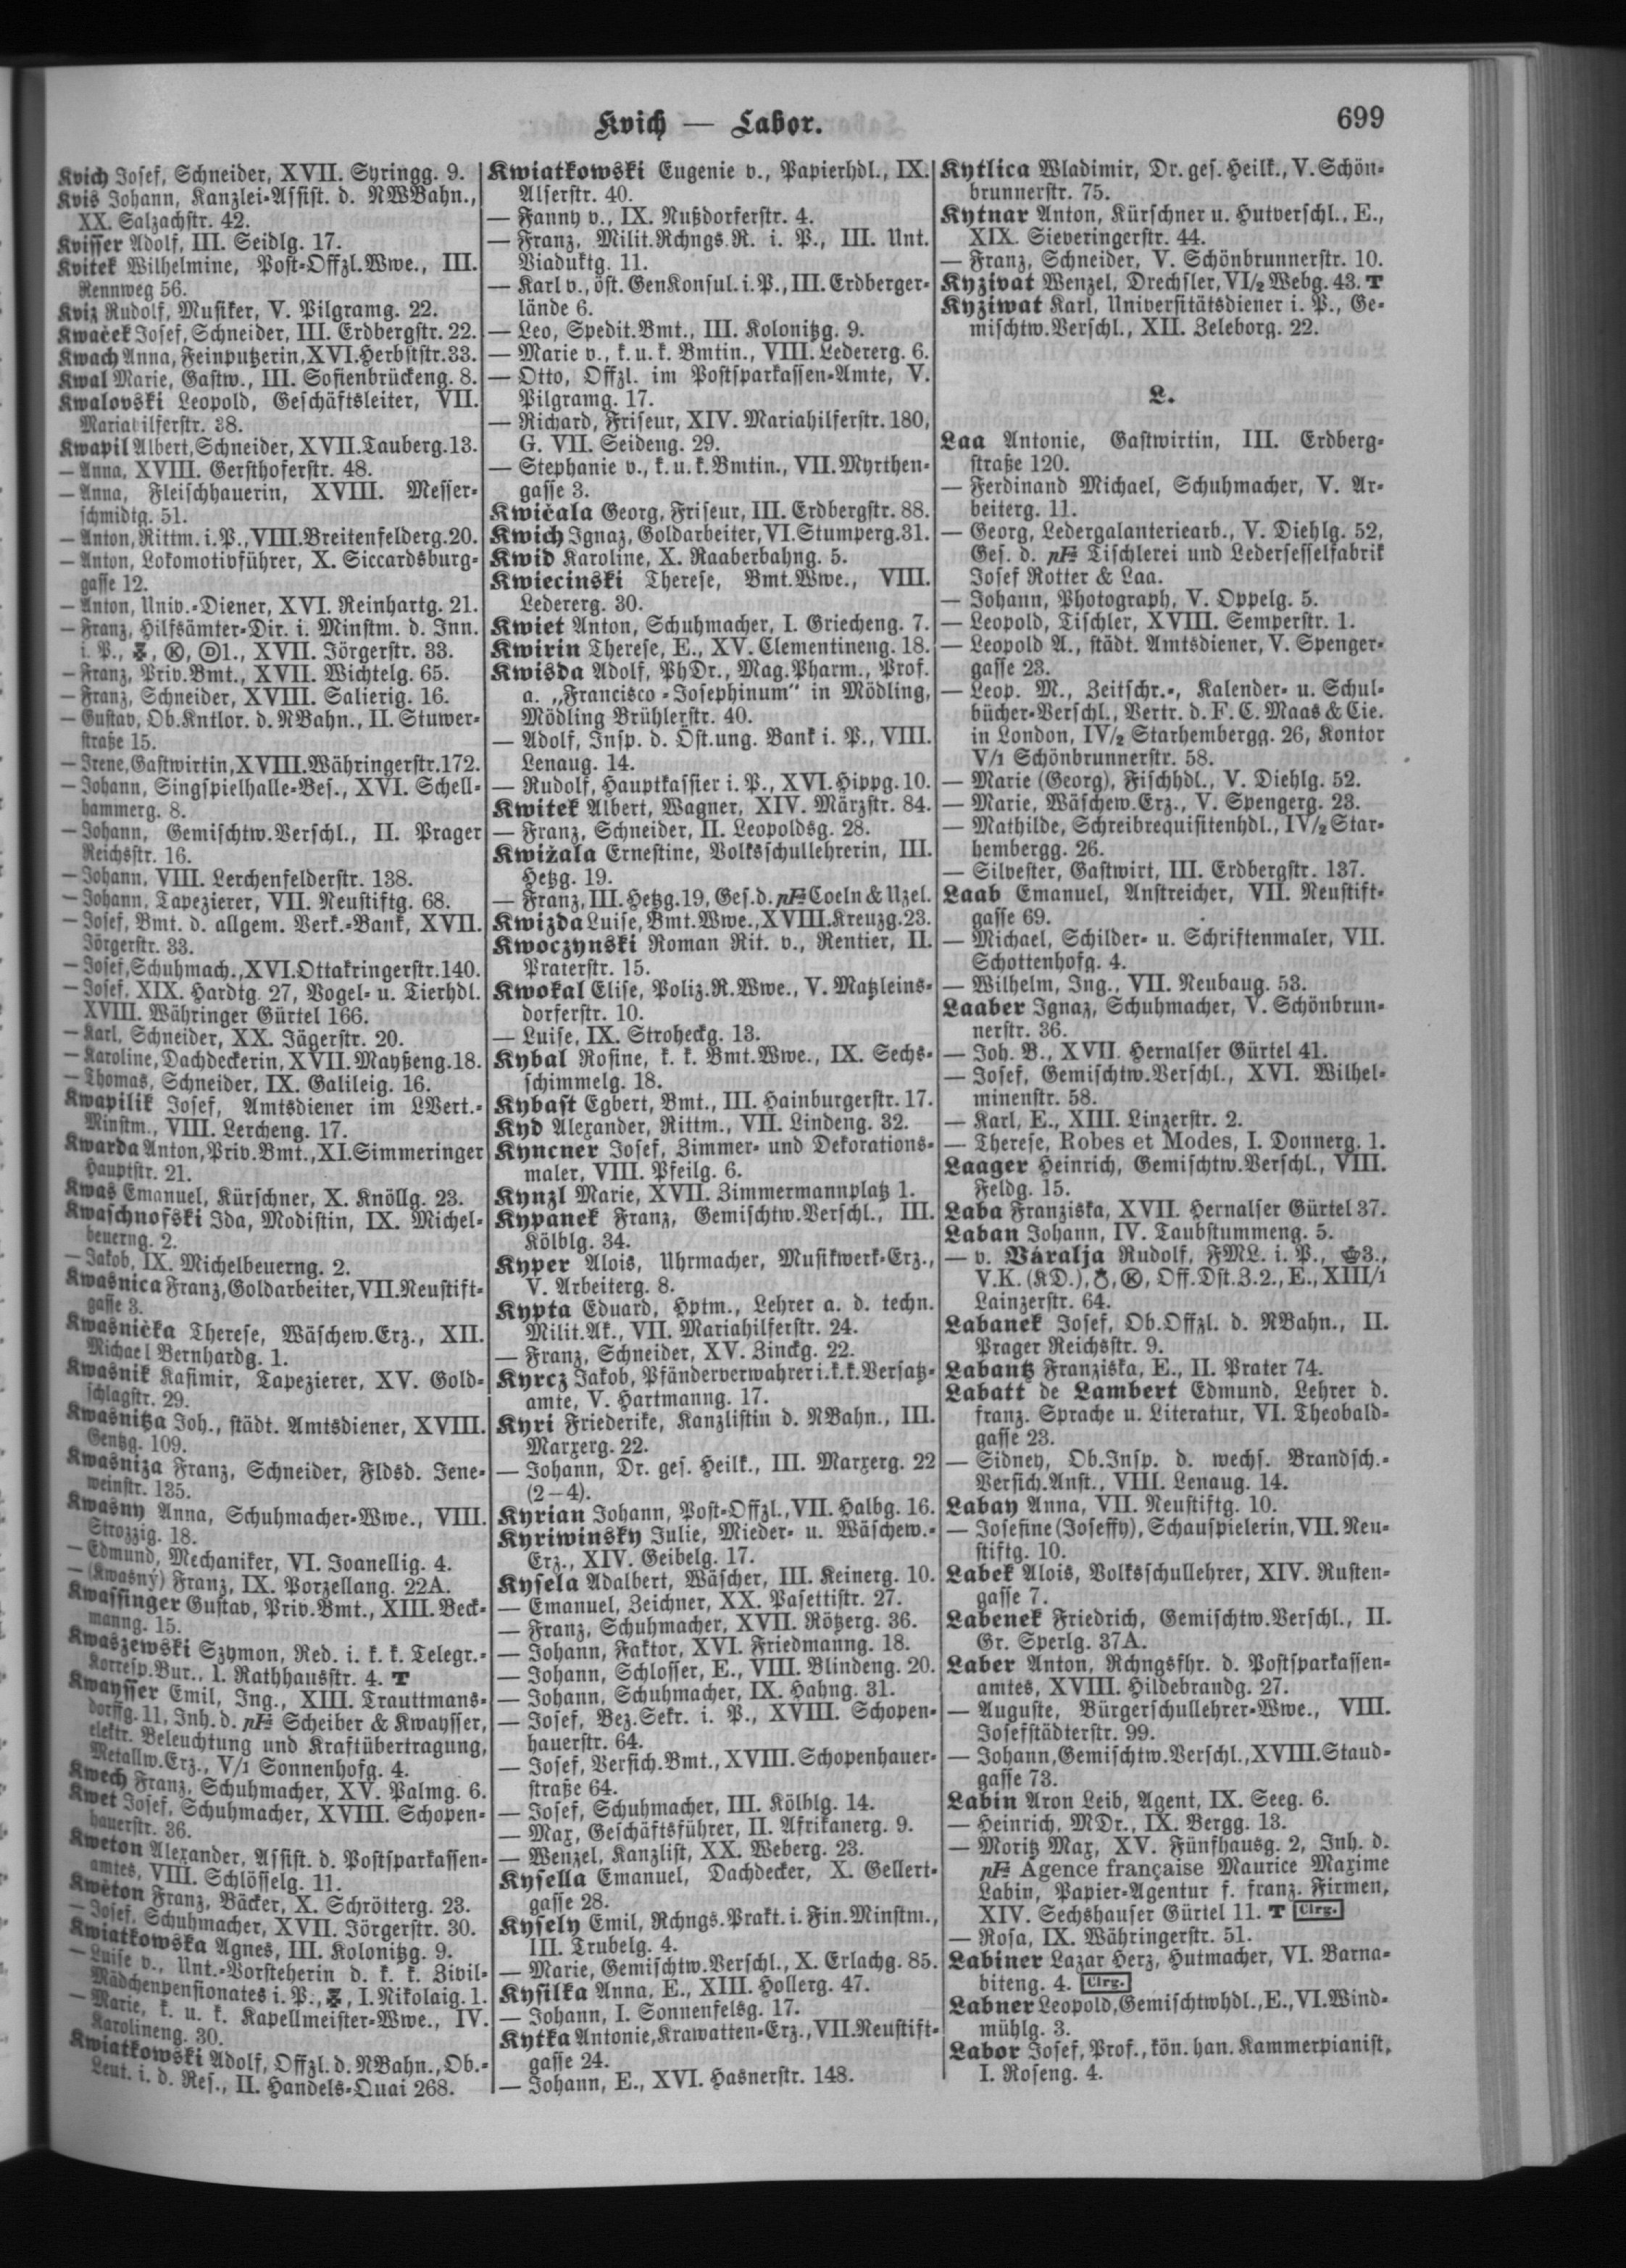 Kvich — Labor.
699
Kvich Josef, Schneider, XVII. Syringg. 9.
Kvis Johann, Kanzlei-Assist. d. NWBahn.,
XX. Salzachstr. 42.
Kvisser Adolf, III. Seidlg. 17.
Kvitek Wilhelmine, Post-Offzl.Wwe., III.
Rennweg 56.
Kviz Rudolf, Musiker, V. Pilgramg. 22.
Kwaček Josef, Schneider, III. Erdbergstr. 22.
Kwach Anna, Feinputzerin, XVI. Herbststr. 33.
Kwal Marie, Gastw., III. Sofienbrückeng. 8.
Kwalovski Leopold, Geschäftsleiter, VII.
Mariahilferstr. 38.
Kwapil Albert, Schneider, XVII. Tauberg. 13.
— Anna, XVIII. Gersthoferstr. 48.
— Anna, Fleischhauerin, XVIII. Messer-
schmidtg. 51.
— Anton, Rittm. i. P., VIII. Breitenfelderg. 20.
— Anton, Lokomotivführer, X. Siccardsburg-
gasse 12.
— Anton, Univ.-Diener, XVI. Reinhartg. 21.
— Franz, Hilfsämter-Dir. i. Minstm. d. Inn.
i. P., Ⓚ, Ⓓ1., XVII. Jörgerstr. 33.
— Franz, Priv.Bmt., XVII. Wichtelg. 65.
— Franz, Schneider, XVIII. Salierig. 16.
— Gustav, Ob.Kntlor. d. NBahn., II. Stuwer-
straße 15.
— Irene, Gastwirtin, XVIII. Währingerstr. 172.
— Johann, Singspielhalle-Bes., XVI. Schell-
hammerg. 8.
— Johann, Gemischtw.Verschl., II. Prager
Reichsstr. 16.
— Johann, VIII. Lerchenfelderstr. 138.
— Johann, Tapezierer, VII. Neustiftg. 68.
— Josef, Bmt. d. allgem. Verk.-Bank, XVII.
Jörgerstr. 33.
— Josef, Schuhmach., XVI. Ottakringerstr. 140.
— Josef, XIX. Hardtg. 27, Vogel- u. Tierhdl.
XVIII. Währinger Gürtel 166.
— Karl, Schneider, XX. Jägerstr. 20.
— Karoline, Dachdeckerin, XVII. Mayßeng. 18.
— Thomas, Schneider, IX. Galileig. 16.
Kwapilik Josef, Amtsdiener im LVert.-
Minstm., VIII. Lercheng. 17.
Kwarda Anton, Priv.Bmt., XI. Simmeringer
Hauptstr. 21.
Kwas Emanuel, Kürschner, X. Knöllg. 23.
Kwaschnofski Ida, Modistin, IX. Michel-
beuerng. 2.
— Jakob, IX. Michelbeuerng. 2.
Kwasnica Franz, Goldarbeiter, VII. Neustift-
gasse 3.
Kwasnička Therese, Wäschew.Erz., XII.
Michael Bernhardg. 1.
Kwasnik Kasimir, Tapezierer, XV. Gold-
schlagstr. 29.
Kwasnitza Joh., städt. Amtsdiener, XVIII.
Gentzg. 109.
Kwasniza Franz, Schneider, Fldsd. Jene-
weinstr. 135.
Kwasny Anna, Schuhmacher-Wwe., VIII.
Strozzig. 18.
— Edmund, Mechaniker, VI. Joanellig. 4.
— (Kwasný) Franz, IX. Porzellang. 22A.
Kwassinger Gustav, Priv.Bmt., XIII. Beck-
manng. 15.
Kwaszewski Szymon, Red. i. k. k. Telegr.-
Korresp.Bur., I. Rathhausstr. 4. T
Kwaysser Emil, Ing., XIII. Trauttmans-
dorffg. 11, Inh. d. pF Scheiber & Kwaysser,
elektr. Beleuchtung und Kraftübertragung,
Metallw.Erz., V/1 Sonnenhofg. 4.
Kwech Franz, Schuhmacher, XV. Palmg. 6.
Kwet Josef, Schuhmacher, XVIII. Schopen-
hauerstr. 36.
Kweton Alexander, Assist. d. Postsparkassen-
amtes, VIII. Schlösselg. 11.
Kwěton Franz, Bäcker, X. Schrötterg. 23.
— Josef, Schuhmacher, XVII. Jörgerstr. 30.
Kwiatkowska Agnes, III. Kolonitzg. 9.
— Luise v., Unt.-Vorsteherin d. k. k. Zivil-
Mädchenpensionates i. P., I. Nikolaig. 1.
— Marie, k. u. k. Kapellmeister-Wwe., IV.
Karolineng. 30.
Kwiatkowski Adolf, Offzl. d. NBahn., Ob.-
Leut. i. d. Res., II. Handels-Quai 268.
Kwiatkowski Eugenie v., Papierhdl., IX.
Alserstr. 40.
— Fanny v., IX. Nußdorferstr. 4.
— Franz, Milit.Rchngs.R. i. P., III. Unt.
Viaduktg. 11.
— Karl v., öst. GenKonsul. i. P., III. Erdberger-
lände 6.
— Leo, Spedit.Bmt., III. Kolonitzg. 9.
— Marie v., k. u. k. Bmtin., VIII. Ledererg. 6.
— Otto, Offzl. im Postsparkassen-Amte, V.
Pilgramg. 17.
— Richard, Friseur, XIV. Mariahilferstr. 180,
G. VII. Seideng. 29.
— Stephanie v., k. u. k. Bmtin., VII. Myrthen-
gasse 3.
Kwičala Georg, Friseur, III. Erdbergstr. 88.
Kwich Ignaz, Goldarbeiter, VI. Stumperg. 31.
Kwid Karoline, X. Raaberbahng. 5.
Kwiecinski Therese, Bmt.Wwe., VIII.
Ledererg. 30.
Kwiet Anton, Schuhmacher, I. Griecheng. 7.
Kwirin Therese, E., XV. Clementineng. 18.
Kwisda Adolf, PhDr., Mag.Pharm., Prof.
a. „Francisco-Josephinum“ in Mödling,
Mödling Brühlerstr. 40.
— Adolf, Insp. d. Öst.ung. Bank i. P., VIII.
Lenaug. 14.
— Rudolf, Hauptkassier i. P., XVI. Hippg. 10.
Kwitek Albert, Wagner, XIV. Märzstr. 84.
— Franz, Schneider, II. Leopoldsg. 28.
Kwižala Ernestine, Volksschullehrerin, III.
Hetzg. 19.
— Franz, III. Hetzg. 19, Ges. d. pF Coeln & Uzel.
Kwizda Luise, Bmt.Wwe., XVIII. Kreuzg. 23.
Kwoczynski Roman Rit. v., Rentier, II.
Praterstr. 15.
Kwokal Elise, Poliz.R.Wwe., V. Matzleins-
dorferstr. 10.
— Luise, IX. Stroheckg. 13.
Kybal Rosine, k. k. Bmt.Wwe., IX. Sechs-
schimmelg. 18.
Kybast Egbert, Bmt., III. Hainburgerstr. 17.
Kyd Alexander, Rittm., VII. Lindeng. 32.
Kyncner Josef, Zimmer- und Dekorations-
maler, VIII. Pfeilg. 6.
Kynzl Marie, XVII. Zimmermannplatz 1.
Kypanek Franz, Gemischtw.Verschl., III.
Kölblg. 34.
Kyper Alois, Uhrmacher, Musikwerk-Erz.,
V. Arbeiterg. 8.
Kypta Eduard, Hptm., Lehrer a. d. techn.
Milit.Ak., VII. Mariahilferstr. 24.
— Franz, Schneider, XV. Zinckg. 22.
Kyrcz Jakob, Pfänderverwahrer i. k. k. Versatz-
amte, V. Hartmanng. 17.
Kyri Friederike, Kanzlistin d. NBahn., III.
Marxerg. 22.
— Johann, Dr. ges. Heilk., III. Marxerg. 22
(2–4).
Kyrian Johann, Post-Offzl., VII. Halbg. 16.
Kyriwinsky Julie, Mieder- u. Wäschew.-
Erz., XIV. Geibelg. 17.
Kysela Adalbert, Wäscher, III. Keinerg. 10.
— Emanuel, Zeichner, XX. Pasettistr. 27.
— Franz, Schuhmacher, XVII. Rötzerg. 36.
— Johann, Faktor, XVI. Friedmanng. 18.
— Johann, Schlosser, E., VIII. Blindeng. 20.
— Johann, Schuhmacher, IX. Hahng. 31.
— Josef, Bez.Sekr. i. P., XVIII. Schopen-
hauerstr. 64.
— Josef, Versich.Bmt., XVIII. Schopenhauer-
straße 64.
— Josef, Schuhmacher, III. Kölblg. 14.
— Max, Geschäftsführer, II. Afrikanerg. 9.
— Wenzel, Kanzlist, XX. Weberg. 23.
Kysella Emanuel, Dachdecker, X. Gellert-
gasse 28.
Kysely Emil, Rchngs.Prakt. i. Fin.Minstm.,
III. Trubelg. 4.
— Marie, Gemischtw.Verschl., X. Erlachg. 85.
Kysilka Anna, E., XIII. Hollerg. 47.
— Johann, I. Sonnenfelsg. 17.
Kytka Antonie, Krawatten-Erz., VII. Neustift-
gasse 24.
— Johann, E., XVI. Hasnerstr. 148.
Kytlica Wladimir, Dr. ges. Heilk., V. Schön-
brunnerstr. 75.
Kytnar Anton, Kürschner u. Hutverschl., E.,
XIX. Sieveringerstr. 44.
— Franz, Schneider, V. Schönbrunnerstr. 10.
Kyzivat Wenzel, Drechsler, VI/2 Webg. 43. T
Kyziwat Karl, Universitätsdiener i. P., Ge-
mischtw.Verschl., XII. Zeleborg. 22.
L.
Laa Antonie, Gastwirtin, III. Erdberg-
straße 120.
— Ferdinand Michael, Schuhmacher, V. Ar-
beiterg. 11.
— Georg, Ledergalanteriearb., V. Diehlg. 52,
Ges. d. pF Tischlerei und Ledersesselfabrik
Josef Rotter & Laa.
— Johann, Photograph, V. Oppelg. 5.
— Leopold, Tischler, XVIII. Semperstr. 1.
— Leopold A., städt. Amtsdiener, V. Spenger-
gasse 23.
— Leop. M., Zeitschr.-, Kalender- u. Schul-
bücher-Verschl., Vertr. d. F. C. Maas & Cie.
in London, IV/2 Starhembergg. 26, Kontor
V/1 Schönbrunnerstr. 58.
— Marie (Georg), Fischhdl., V. Diehlg. 52.
— Marie, Wäschew.Erz., V. Spengerg. 23.
— Mathilde, Schreibrequisitenhdl., IV/2 Star-
hembergg. 26.
— Silvester, Gastwirt, III. Erdbergstr. 137.
Laab Emanuel, Anstreicher, VII. Neustift-
gasse 69.
— Michael, Schilder- u. Schriftenmaler, VII.
Schottenhofg. 4.
— Wilhelm, Ing., VII. Neubaug. 53.
Laaber Ignaz, Schuhmacher, V. Schönbrun-
nerstr. 36.
— Joh. B., XVII. Hernalser Gürtel 41.
— Josef, Gemischtw.Verschl., XVI. Wilhel-
minenstr. 58.
— Karl, E., XIII. Linzerstr. 2.
— Therese, Robes et Modes, I. Donnerg. 1.
Laager Heinrich, Gemischtw.Verschl., VIII.
Feldg. 15.
Laba Franziska, XVII. Hernalser Gürtel 37.
Laban Johann, IV. Taubstummeng. 5.
— v. Váralja Rudolf, FML. i. P., 3.,
V.K. (KD.), Ⓚ, Off.Dst.Z.2., E., XIII/1
Lainzerstr. 64.
Labanek Josef, Ob.Offzl. d. NBahn., II.
Prager Reichsstr. 9.
Labantz Franziska, E., II. Prater 74.
Labatt de Lambert Edmund, Lehrer d.
franz. Sprache u. Literatur, VI. Theobald-
gasse 23.
— Sidney, Ob.Insp. d. wechs. Brandsch.-
Versich.Anst., VIII. Lenaug. 14.
Labay Anna, VII. Neustiftg. 10.
— Josefine (Joseffy), Schauspielerin, VII. Neu-
stiftg. 10.
Labek Alois, Volksschullehrer, XIV. Rusten-
gasse 7.
Labenek Friedrich, Gemischtw.Verschl., II.
Gr. Sperlg. 37A.
Laber Anton, Rchngsfhr. d. Postsparkassen-
amtes, XVIII. Hildebrandg. 27.
— Auguste, Bürgerschullehrer-Wwe., VIII.
Josefstädterstr. 99.
— Johann, Gemischtw.Verschl., XVIII. Staud-
gasse 73.
Labin Aron Leib, Agent, IX. Seeg. 6.
— Heinrich, MDr., IX. Bergg. 13.
— Moritz Max, XV. Fünfhausg. 2, Inh. d.
pF Agence française Maurice Maxime
Labin, Papier-Agentur f. franz. Firmen,
XIV. Sechshauser Gürtel 11. T Clrg.
— Rosa, IX. Währingerstr. 51.
Labiner Lazar Herz, Hutmacher, VI. Barna-
biteng. 4. Clrg.
Labner Leopold, Gemischtwhdl., E., VI. Wind-
mühlg. 3.
Labor Josef, Prof., kön. han. Kammerpianist,
I. Roseng. 4.